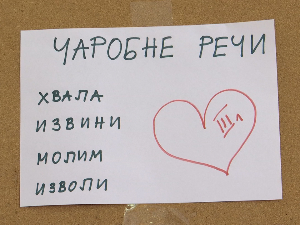 ЧАРОБНЕ РЕЧИ
ХВАЛА
ИЗВИНИ
МОЛИМ
ИЗВОЛИ
III 1